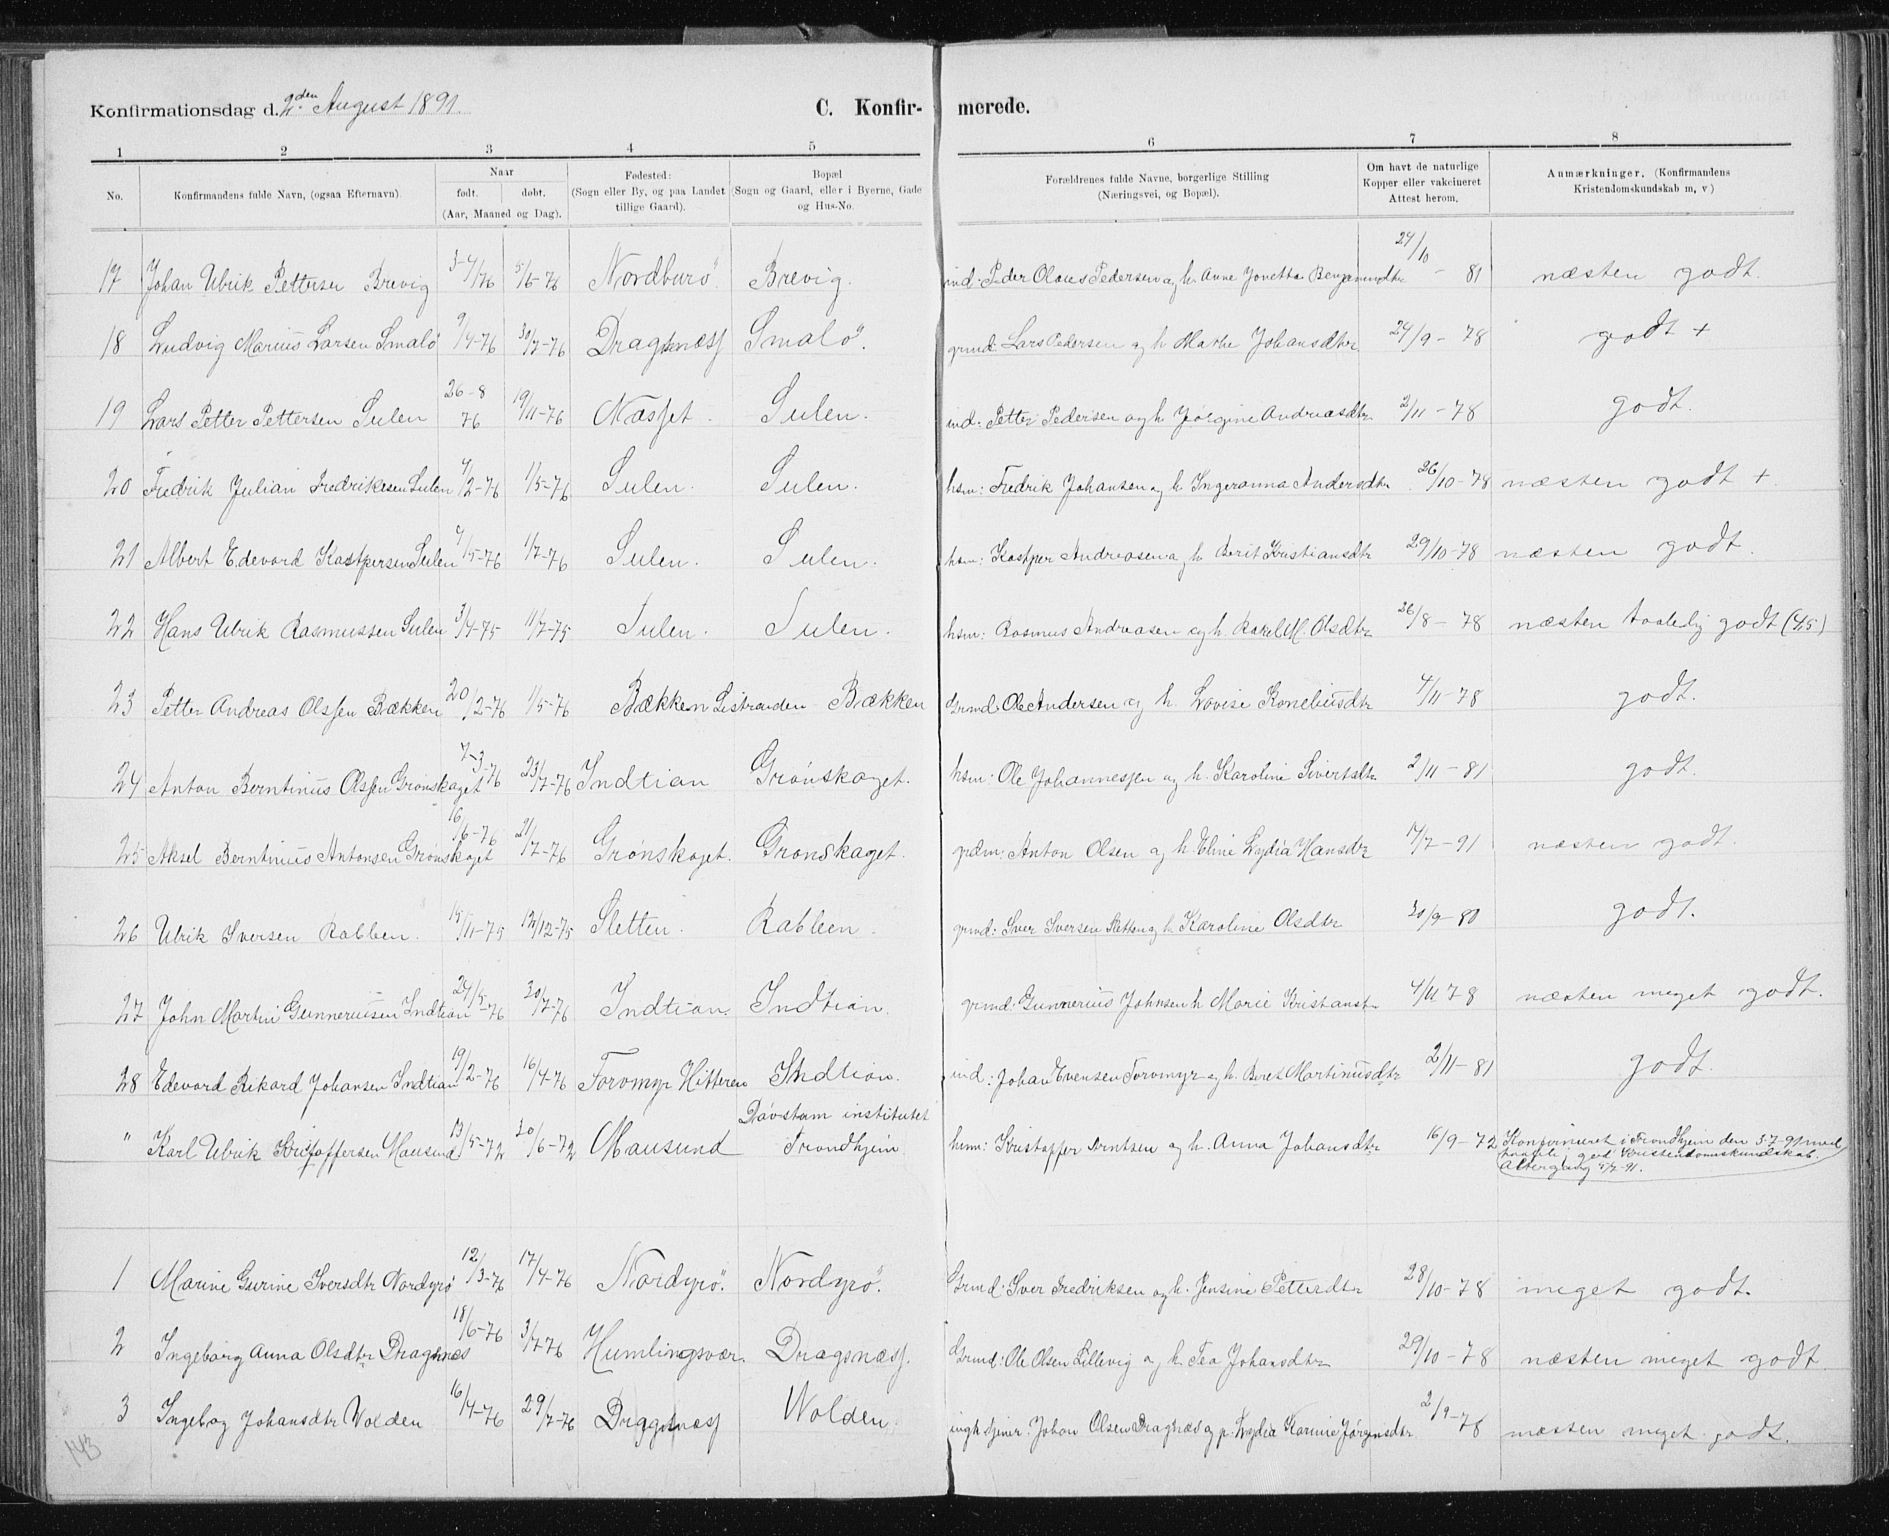 Konfirmationsdag d. 2den August 1891. C. Konfir- merede.
1 2 3 4 5 6 7 8
No. Konfirmandens fulde Navn, (ogsaa Efternavn) Naar født. døbt. (Aar, Maaned og Dag). Fødested: (Sogn eller By, og paa Landet tillige Gaard). Bopæl (Sogn og Gaard, eller i Byerne, Gade og Hus-No. Forældrenes fulde Navne, borgerlige Stilling (Næringsvei, og Bopæl). Om havt de naturlige Kopper eller vakcineret Attest herom. Anmærkninger. (Konfirmandens Kristendomskundskab m, v)
17 Johan Ulrik Petterser Brevig 3-4/76 5/6-76 Nordburö Brevig. ind: Peder Olaus Pedersen og h. Anne Jonetta Benjamindtr 24/10 - 81 næsten godt.
18 Ludvig Marius Larsen Smalö 9/4-76 30/7-76 Dragsnæss Smalö. grmd: Lars Pedersen og h Marhe Johansdtr 24/9 - 78 godt +
19 Lars Petter Pettersen Sulen 26-8 76 19/11-76 Næsset Sulen. ind: Petter Pedersen og h. Jörgine Andreasdtr 2/11 - 78 godt.
20 Fredrik Julian Fredriksen Sulen 4/2-76 1/5-76 Sulen. Sulen. hsm: Fredrik Johansen og h. Ingeranna Andersdtr 26/10-78 næsten godt +
21 Albert Edevard Kastpersen Sulen 9/5-76 1/7-76 Sulen. Sulen. hsm: Kastper Andreasen og h. Berit Kristiansdtr 29/10-78 næsten godt.
22 Hans Ulrik Rasmussen Sulen 3/4-75 11/7-75 Sulen. Sulen. hsm: Rasmus Andreasen og h. Rakel M. Olsdtr 26/8 - 78 næsten taalelig godt (4,5)
23 Petter Andreas Olssen Bækken 20/2-76 1/5-76 Bækken Sistranden Bækken Grmd: Ole Andersen og h. Lovise Koneliusdtr 4/11-78 godt.
24 Anton Berntinus Olssen Grönskaget 7-3-76 23/7-76 Indtian Grönskaget. hsm: Ole Johannessen og h. Karoline Sivertsdtr 2/11 - 81 godt.
25 Aksel Berntinius Antonsen Grønskaget 16/6-76 21/7-76 Grönskaget. Grönskaget. grdm: Anton Olsen og h. Eline Lydia Hansdtr 14/7 - 91 næsten godt.
26 Ulrik Iversen Rabben. 15/11-75 12/12-75 Sletten. Rabben. grmd: Iver Iversen Sletten og h. Karoline Olsdtr 30/9 - 80 godt.
27 John Martin Gunneriusen Indtian 24/5-76 30/7-76 Indtian Indtian. grmd: Gunnerius Johnsen h. Marie Kristianst- 4/11 78 næsten meget godt.
28 Edevard Rikard Johansen Indtian 19/2-76 16/4-76 Forvmyr Hitteren Indtian. ind: Johan Evensen Torvmyr og h. Beret Martinusdtr 2/11-81 godt.
" Karl Ulrik Kristoffersen Mausund 13/5-72 30/6-72 Mausund Døvstum institutet Trondhjem. hsm: Kristoffer Berntsen og h. Anna Johansdtr 16/9-72 Konfirmeret i Trondhjem den 5-7-91 med taaleli god Kristendomskundskab. Altergang 5/7-91.
1 Marine Gurine Iversdtr Nordyrö 12/3-76 17/4-76 Nordyrö. Nordyrö. Grmd: Iver Fredriksen og h. Jensine Petterdtr 28/10-78 meget godt.
2 Ingeborg Anna Olsdtr Dragsnes 18/6-76 3/7-76 Humlingsvær. Dragsnæss. Grmd: Ole Olsen Lillevig og h. Tea Johansdtr 29/10-78 næsten meget godt
3 Ingebog Johansdtr Wolden 16/4-76 29/7-76 Dragsnæss Wolden. Johan Olsen Dragnæs og p. Lydia Karine Jørgensdtr 2/9-78 næsten meget godt.
143